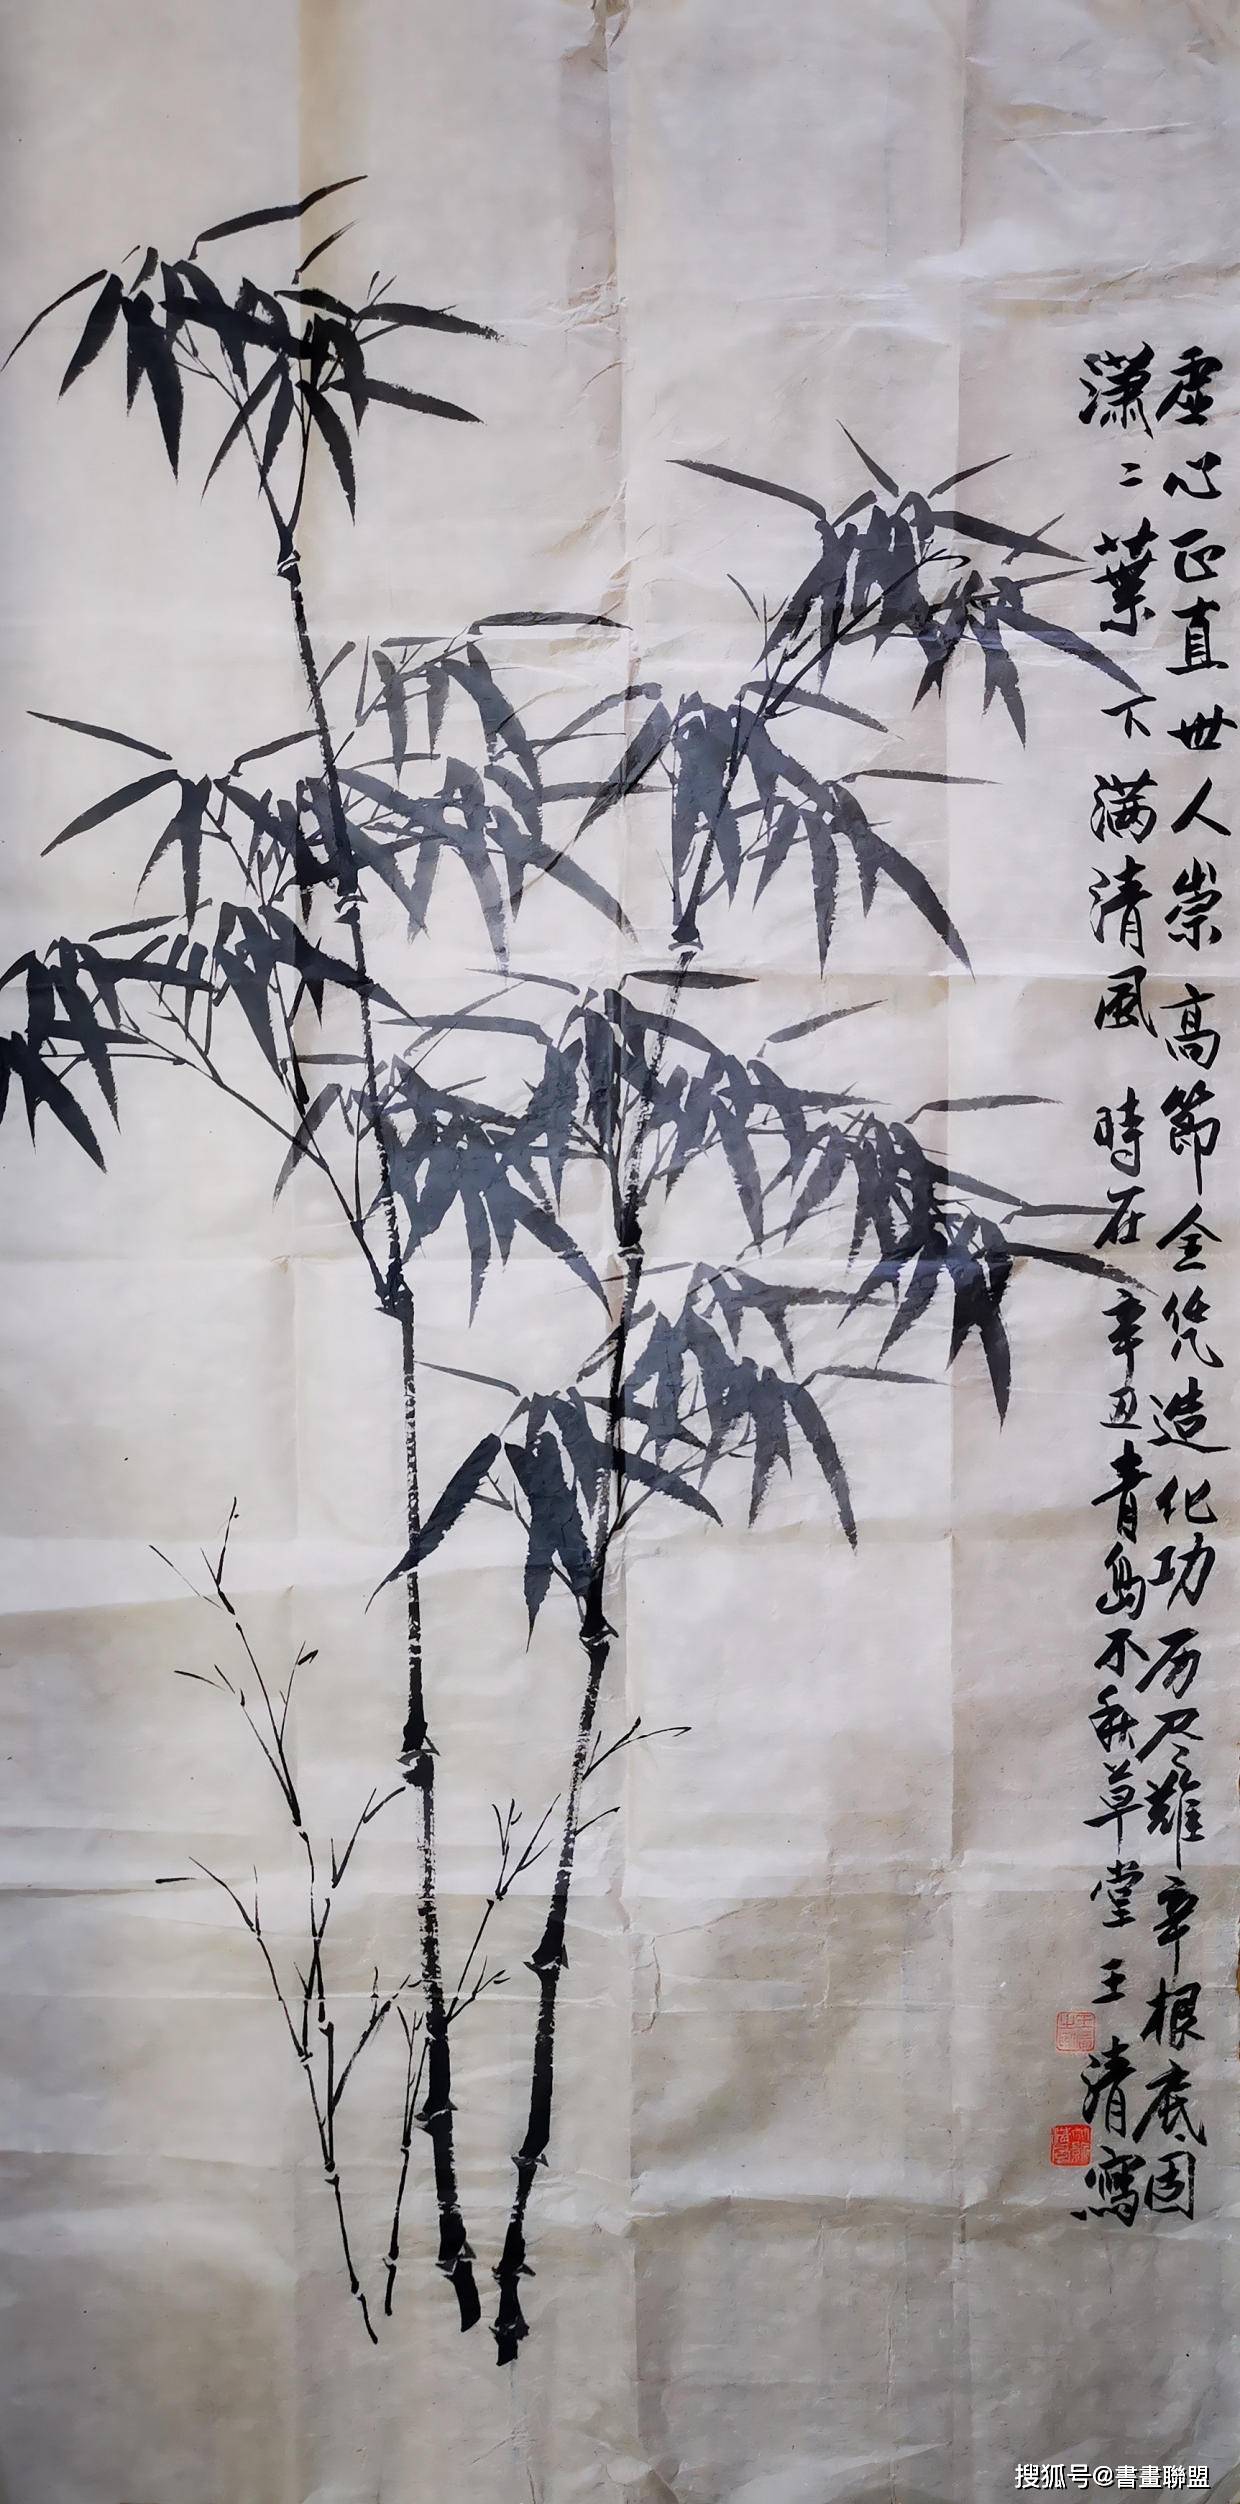 虚心正直世人崇高節全凭造化功历尽難辛根底固
潇二葉下满清風 時在辛丑青岛不秋草堂王清寫
搜狐号@書畫聯盟